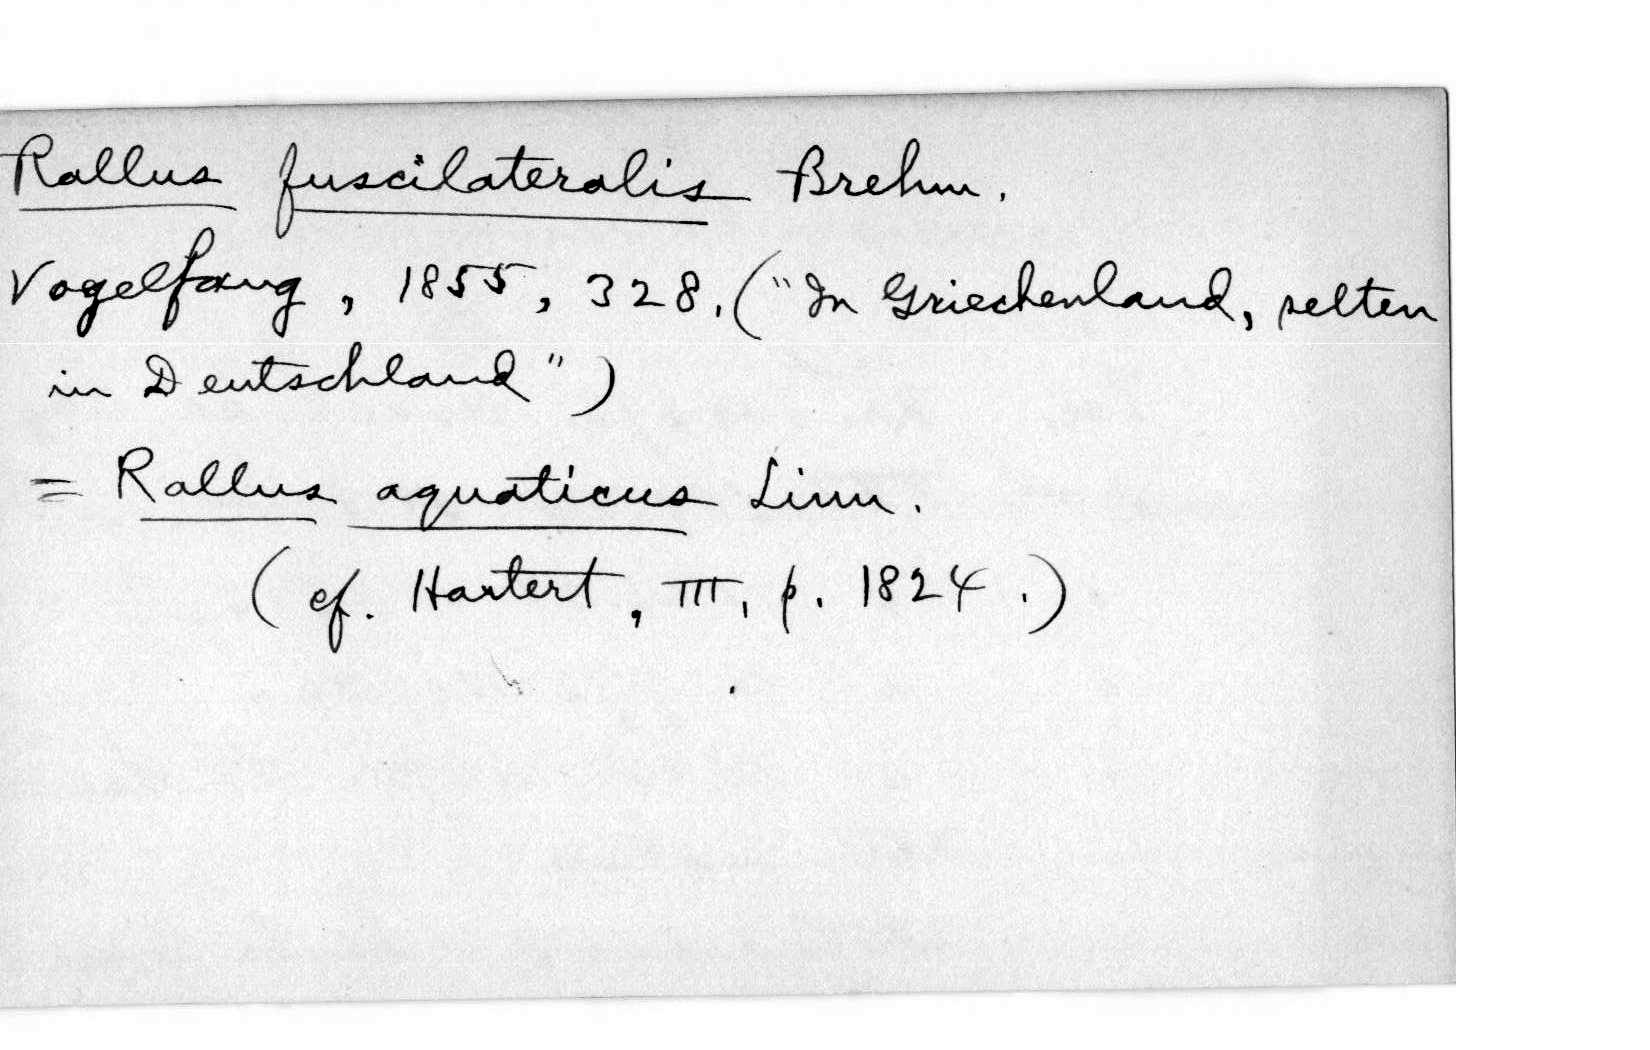 Rallus fuscilateralis Brehm.
Vogelfang, 1855, 328. ("In Griechenland, selten
in Deutschland")
= Rallus aquaticus Linn.
(cf. Hartert, III, p. 1824.)